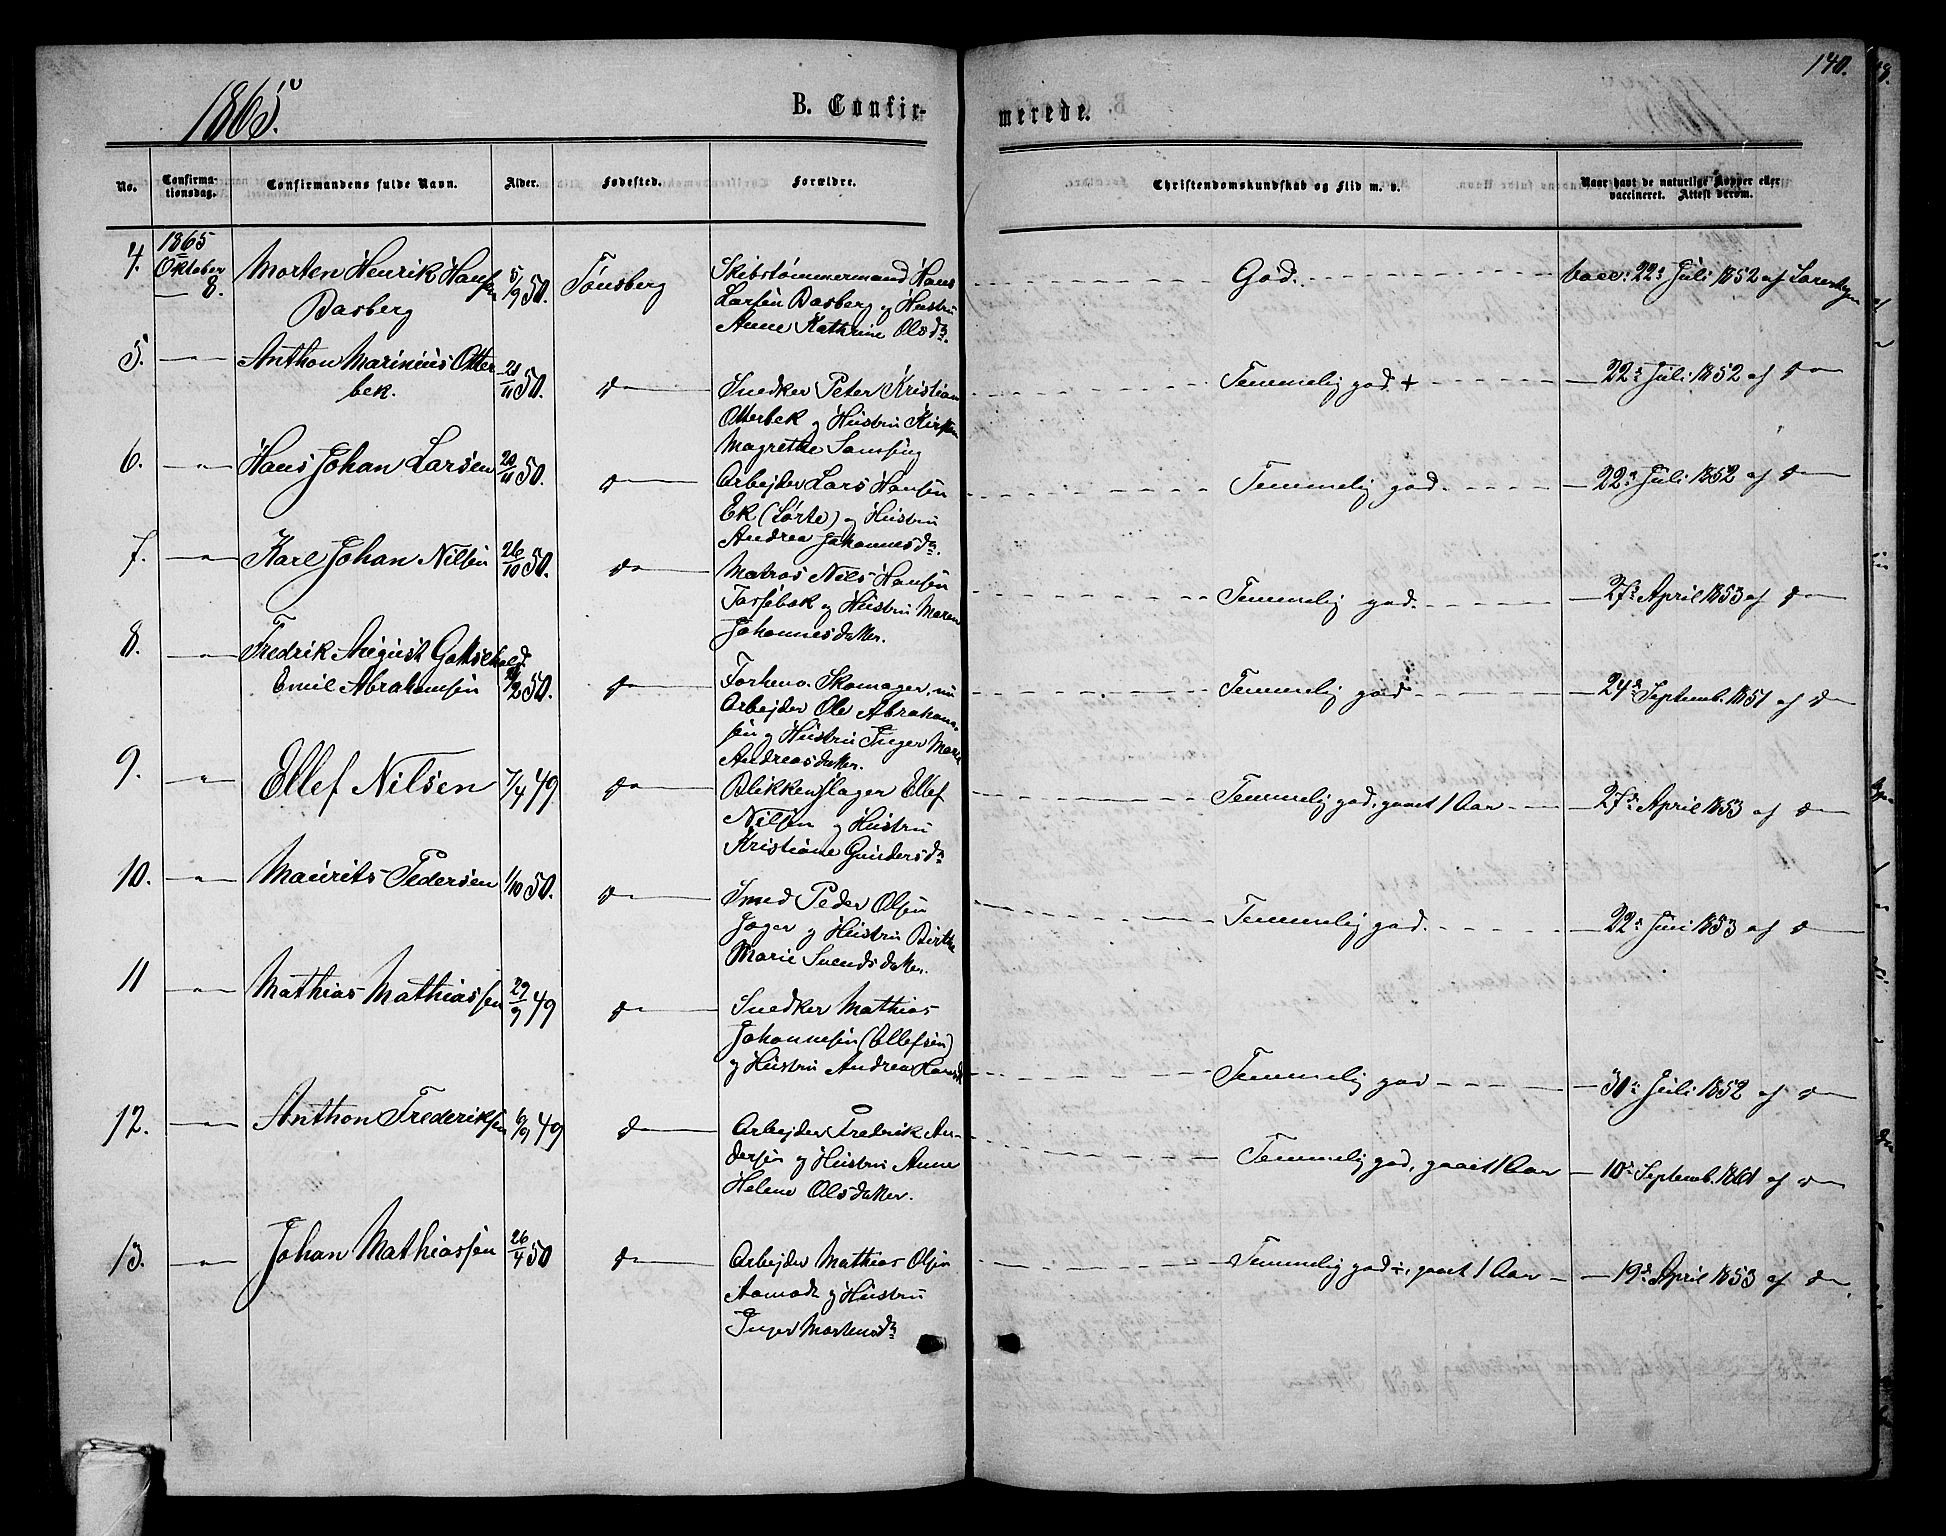 1865.
B. Confir-
merede.
140.
No.
Confirma-
tionsdag.
Confirmandens fulde Navn.
Alder.
Fødested.
Forældre.
Christendomskundskab og Flid m. v.
Naar havt de naturlige Kopper eller
vaccineret. Attest derom.
4. 1865 Oktober 8. Morten Henrik Hansen 5/9 50. Tønsberg Skibstømmermand Hans God. vacc: 22d Juli 1852 af
Basberg Larsen Basberg og Hustru
Anne Kathrine Olsdr.
5. — " — Anthon Marinius Otter 21/11 50. do Snedker Peter Kristian Temmelig god + 22d Juli 1852 af do
bek. Otterbek og Hustru Kirsten
Magrethe
6. — " — Hans Johan Larsen 20/11 50. do Arbejder Lars Hansen Temmelig god. 22d Juli 1852 af do
Ek (Lørte) og Hustru
Andrea Johannesdr.
7. — " — Karl Johan Nilsen 26/10 50. do Matros Nils Hansen Temmelig god. 27d April 1853 af do
og Hustru Maren
Johannesdatter.
8. — " — Fredrik August Gottschald do Forhenv. Skomager, nu Temmelig god 24d Septemb. 1851 af do
Emil Abrahamsen /2 50. Arbejder Ole Abraham-
sen og Hustru Inger Marie
Andreasdatter.
9. — " — Ellef Nilsen 7/4 49. do Blikkenslager Ellef Temmelig god, gaaet 1 Aar 27d April 1853 af do
Nilsen og Hustru
Kristiane Gundersdr
10. — " — Maurits Pedersen 1/10 50. do Smed Peder Olsen Temmelig god. 22d Juni 1853 af do
Jager og Hustru Birthe
Marie Svendsdatter.
11 — " — Mathias Mathiassen 29/9 49 do Snedker Mathias Temmelig god 31d Juli 1852 af do
Johannesen (Ellefsen)
og Hustru Andrea Hansd
12. — " — Anthon Frederiksen 6/9 49 do Arbejder Fredrik An- Temmelig god, gaaet 1 Aar 10d Septemb. 1861 af do
dersen og Hustru Anne
Helene Olsdatter.
13. — " — Johan Mathiassen 26/4 50 do Arbejder Mathias Olsen Temmelig god ÷, gaaet 1 Aar 19d April 1853 af do
Aamodt og Hustru
Inger Mortensdr